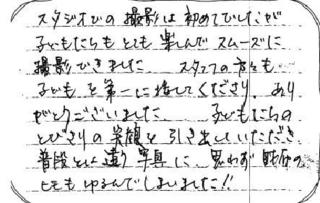 スタジオでの撮影は初めてでしたが
子どもたちもとても楽しんでスムーズに
撮影できました スタッフの方々も
子どもを第一に接してくださり、あり
がとうございました 子どもたちの
とびきりの笑顔を引き出していただき
普段とは違う写真に、思わず
ヒモもゆるんでしまいました!!